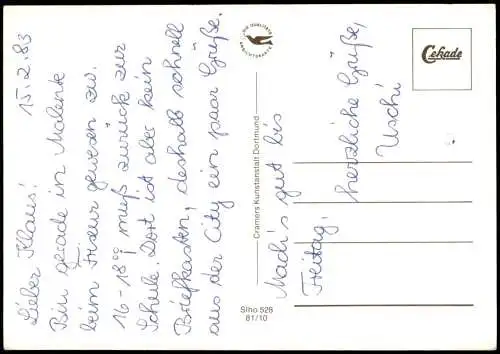 15.2.83
Lieber Klaus!
Bin gerade in
beim Friseur gewesen zw.
16-18⁰⁰ muß zurück zur
Schule. Dort ist aber kein
Briefkasten, deshalb schnell
aus der City ein paar Grüße.
Mach's gut bis
Freitag,
herzliche Grüße,
Uschi
Cekade
Cramers Kunstanstalt Dortmund
Siho 528
81/10